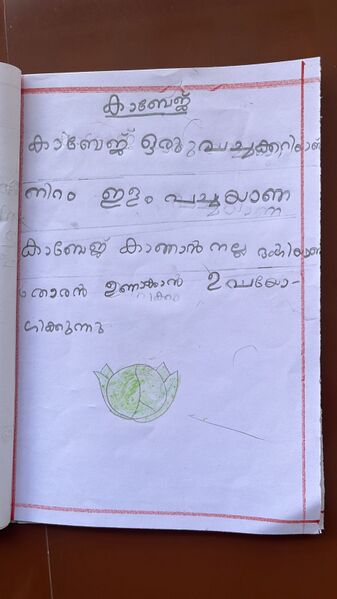 കാബേജ്
കാബേജ് ഒരു പച്ചക്കറിയാണ്
നിറം ഇളം പച്ചയാണ
കാബേജ് കാണാൻ നല്ല ഭംഗിയാണ്
തോരൻ ഉണ്ടാക്കാൻ ഉപയോ-
ഗിക്കുന്നു